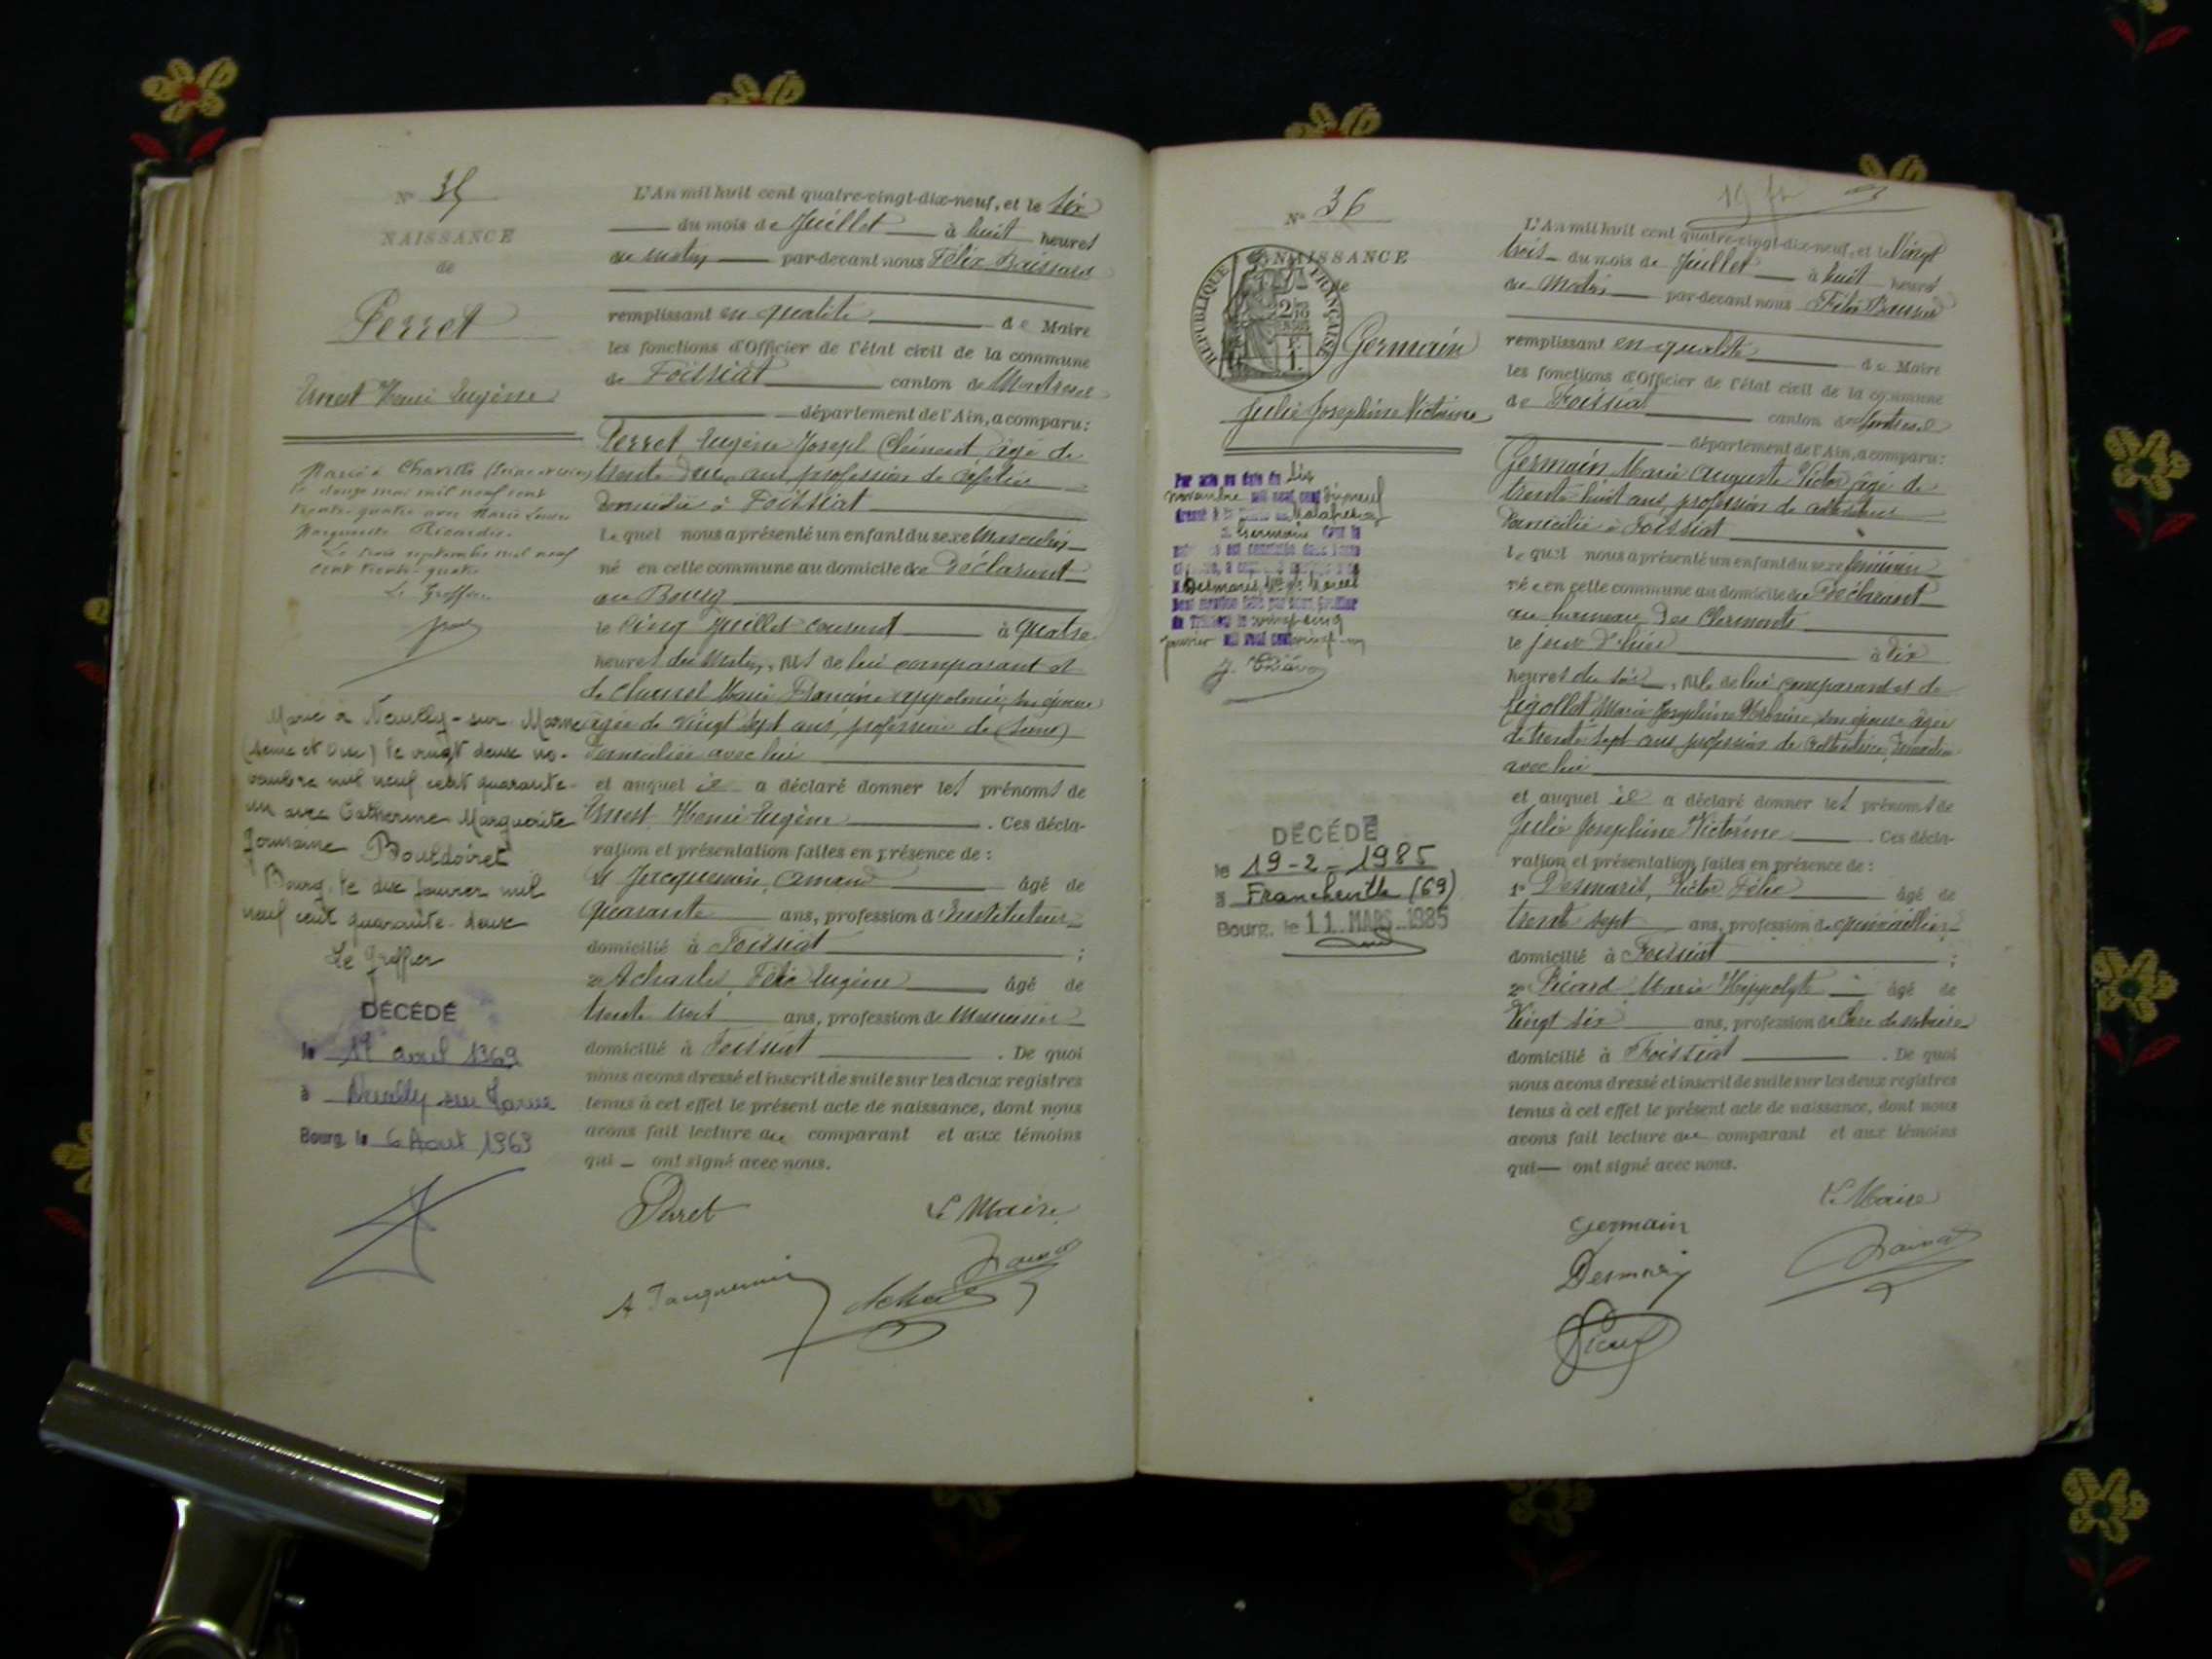 N° 35
NAISSANCE
de
Perret
Ernest Henri Eugène
Marié à Chaville (Seine et Oise)
le douze mai mil neuf cent
trente-quatre avec Marie Louise
Marguerite Ricordie
Le trois septembre mil neuf
cent trente-quatre
Le Greffier
Marié à Neuilly-sur-Marne
(Seine et Oise) le vingt deux no-
vembre mil neuf cent quarante-
un avec Catherine Marguerite
Germaine Bouldoiret
Bourg, le dix janvier mil
neuf cent quarante-deux
Le Greffier
DÉCÉDÉ
le avril 1969
à Neuilly sur Marne
Bourg, le 6 Août 1969
L'An mil huit cent quatre-vingt-dix-neuf, et le Six
du mois de Juillet à huit heures
du matin par-devant nous Félix
remplissant en qualité de Maire
les fonctions d'Officier de l'état civil de la commune
de Foissiat canton de Montrevel
département de l'Ain, a comparu:
Perret Eugène Joseph Clément, âgé de
trente deux ans, profession de cafetier
domicilié à Foissiat
Lequel nous a présenté un enfant du sexe Masculin
né en cette commune au domicile du Déclarant
au Bourg
le Cinq Juillet courant à quatre
heures du matin, fils de lui comparant et
de Marie Francine Appolonie, son épouse
âgée de vingt sept ans, profession de
domiciliée avec lui
et auquel il a déclaré donner les prénoms de
Ernest Henri Eugène . Ces décla-
ration et présentation faites en présence de :
1° Jacquemin, Amand âgé de
quarante ans, profession d'Instituteur
domicilié à Foissiat ;
2° Acharle, Félix Eugène âgé de
trente trois ans, profession de Menuisier
domicilié à Foissiat . De quoi
nous avons dressé et inscrit de suite sur les deux registres
tenus à cet effet le présent acte de naissance, dont nous
avons fait lecture au comparant et aux témoins
qui — ont signé avec nous.
Perret Le Maire
A Jacquemin
N° 36
NAISSANCE
de
RÉPUBLIQUE FRANÇAISE
Germain
Julie Joséphine Victorine
Par acte en date du dix
novembre mil neuf cent dix neuf
Germain
Desmaris
du Tribunal le vingt cinq
janvier mil neuf cent vingt un
DÉCÉDÉE
le 19-2-1985
à Francheville (69)
Bourg, le 11 MARS 1985
19 fr
L'An mil huit cent quatre-vingt-dix-neuf, et le Vingt
trois du mois de Juillet à huit heures
du Matin par-devant nous Félix
remplissant en qualité de Maire
les fonctions d'Officier de l'état civil de la commune
de Foissiat canton de Montrevel
département de l'Ain, a comparu:
Germain Marie Auguste Victor âgé de
trente huit ans, profession de cultivateur
domicilié à Foissiat
Lequel nous a présenté un enfant du sexe féminin
née en cette commune au domicile du Déclarant
au hameau Des Clermonts
le jour d'hier à dix
heures du soir, fille de lui comparant et de
Marie Joséphine son épouse âgée
de trente sept ans profession de cultivatrice, domiciliée
avec lui
et auquel il a déclaré donner les prénoms de
Julie Joséphine Victorine . Ces décla-
ration et présentation faites en présence de :
1° Desmaris, Victor Félix âgé de
trente sept ans, profession de quincaillier
domicilié à Foissiat ;
2° Picard, Marie Hippolyte âgé de
Vingt six ans, profession de Clerc de notaire
domicilié à Foissiat . De quoi
nous avons dressé et inscrit de suite sur les deux registres
tenus à cet effet le présent acte de naissance, dont nous
avons fait lecture au comparant et aux témoins
qui — ont signé avec nous.
Le Maire
Germain
Desmaris
Picard